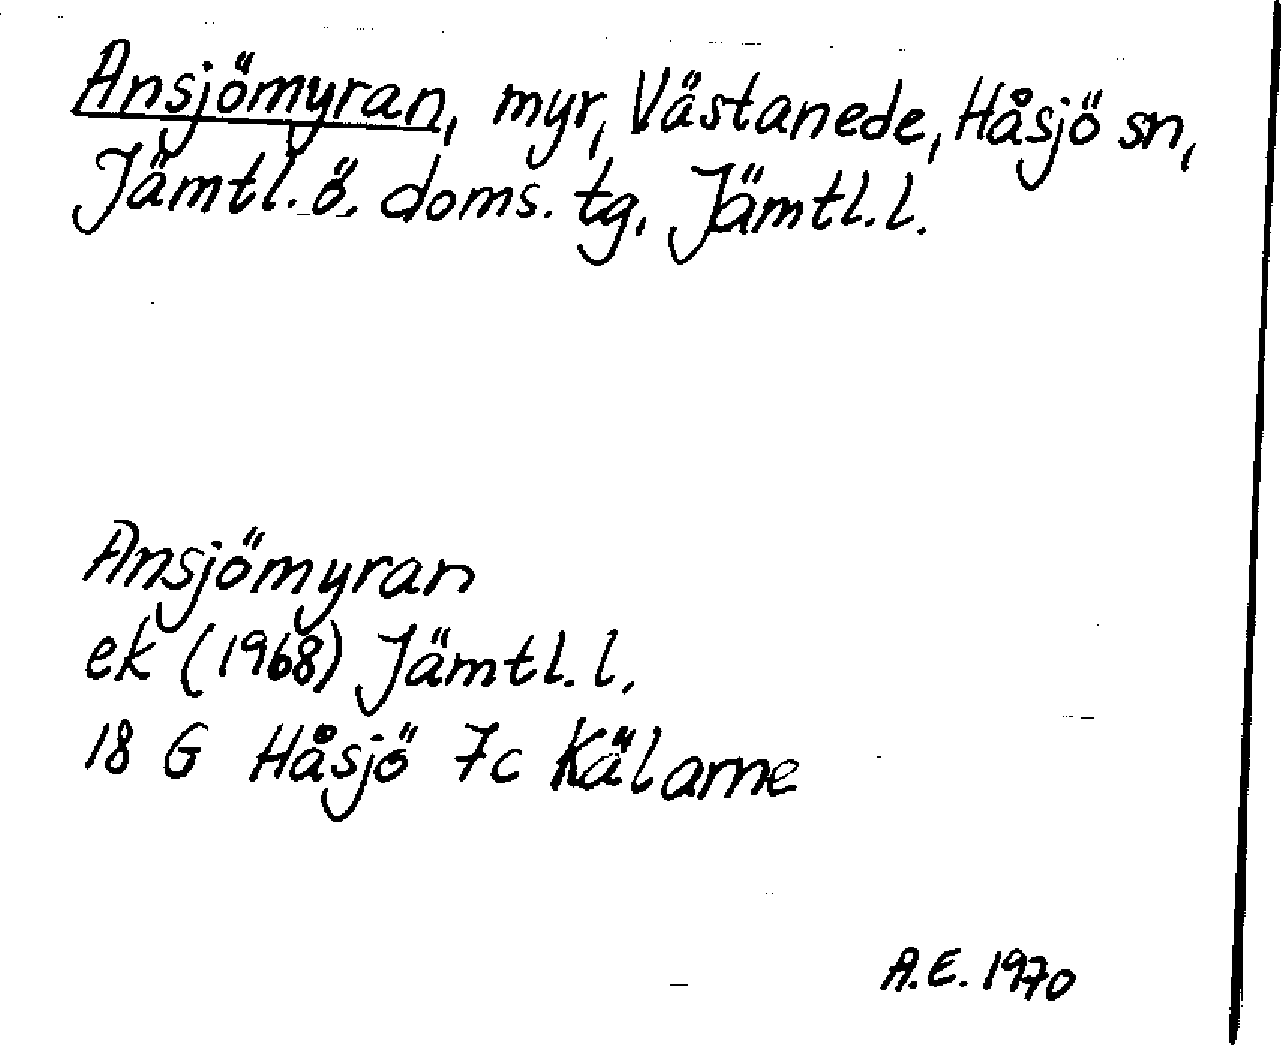 Ansjömyran, myr, Västanede, Håsjö sn,
Jämtl. ö. doms. tg. Jämtl. l.
Ansjömyran
ek (1968) Jämtl. l.
18 G Håsjö 7c Kälarne
A.E. 1970